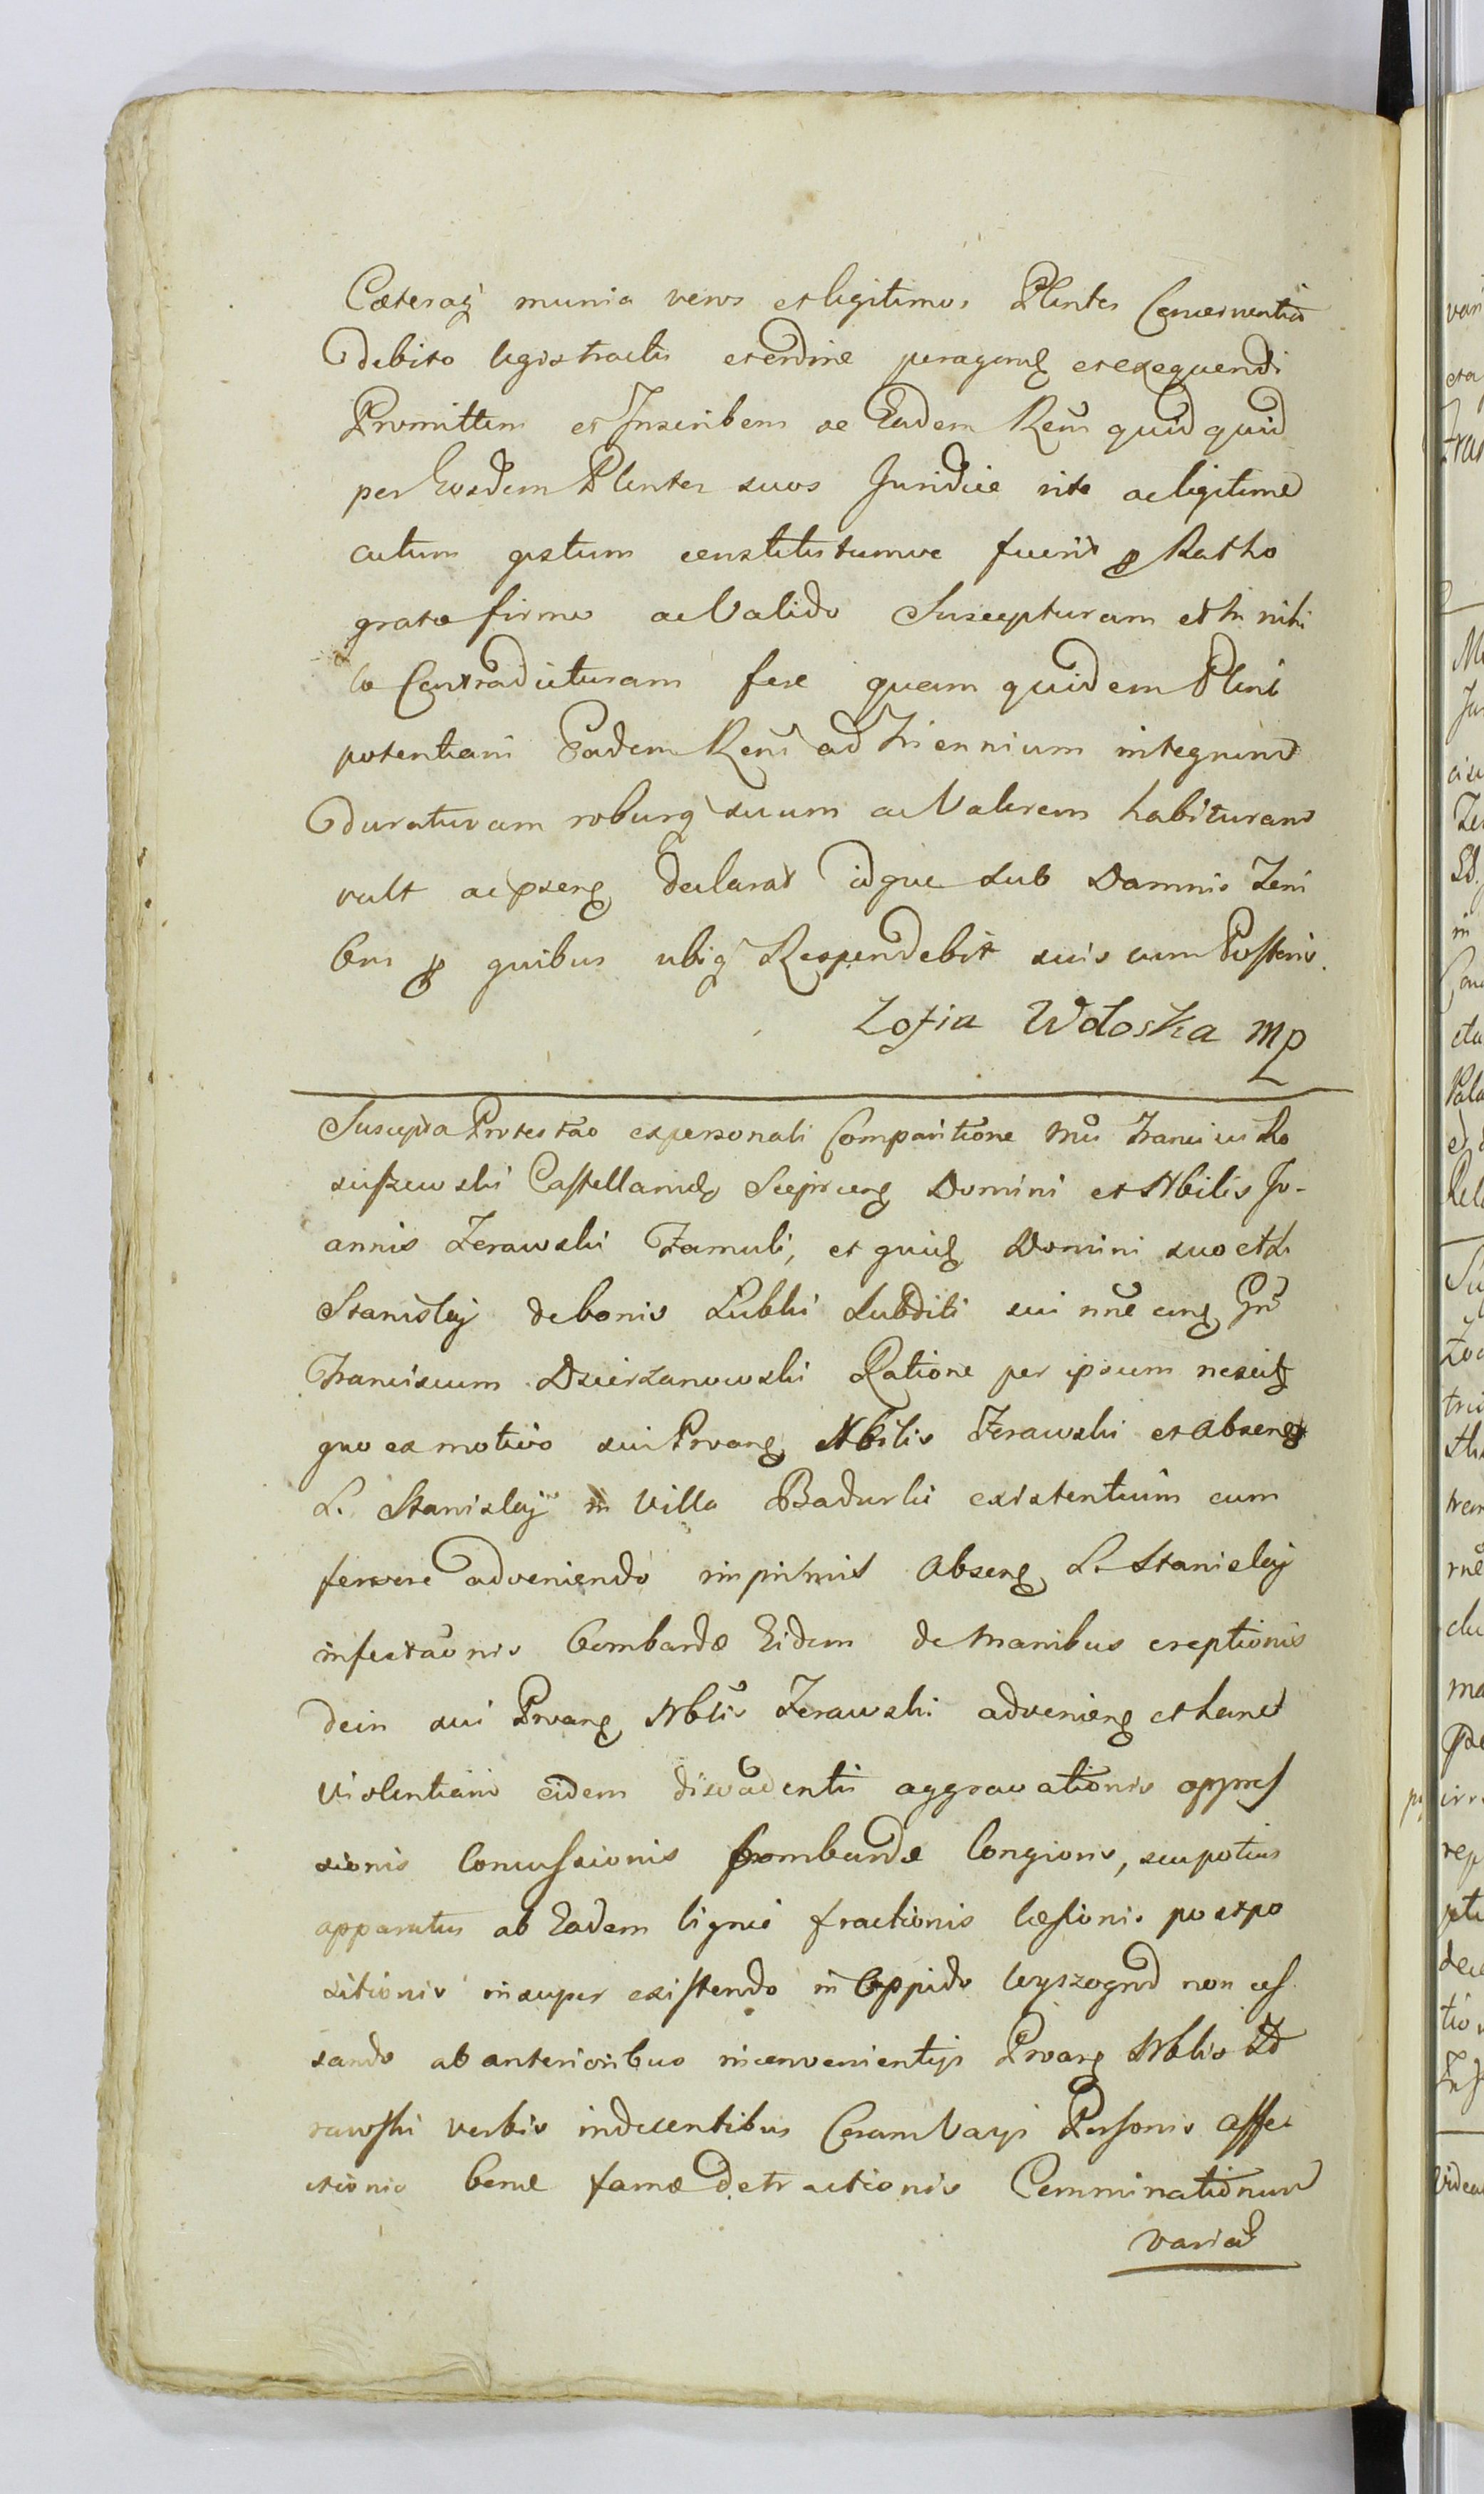 Cæteraq munia veros et legitimos Plentes Concernentia
debito legis tractu et ordine peragend et exequendi
Promittens et Inscribens se Eadem Reñs quid quid
per Eosdem Plentes suos Juridice rite ac legitime
actum gestum constitutumve fuerit p Ratho
grato firmo ac Valido Suscepturam et In nihi
lo Contradicturam fore quam quidem Pleni
potentiam Eadem Reñs ad Triennium integrum
duraturam roburq suum ac Valorem habituram
vult ac pseng declarat idque sub Damnis Terri
bus p quibus ubiq Respondebit suis cum Posteris.
Zofia Włoska mp
Suscepta Protestão ex personali Comparitione Mci Francisci Ko
suszewski Castellanid Sieprceng Domini et Nbilis Jo-
annis Zerawski Famuli, et quid Domini suo et L.
Stanislaj de bonis Lubki Subditi sui nñe cing Gñ
Franciscum Dzierzanowski Ratione per ipsum nescit
quo ex motivo sui Prvang Nbilis Zerawski et Abseng
L. Stanislaj in Villa Badurki existentium cum
fervore adveniendo inprimis Abseng L. Stanislaj
infestãonis Bombardæ Eidem de Manibus ereptionis
dein sui Prvang Nblis Zerawski advenieng et hanc
Violentiam eidem disvadentis aggravationis oppres
sionis Concussionis Bombardæ longioris, seu potius
apparatus ab Eadem lignei fractionis læsionis postpo
sitionis insuper existendo in Oppido Wyszogrod non ces
sando ab anterioribus inconvenientijs Prvang Nblis Ze
rawski verbis indecentibus Coram Varijs Personis affe
ctionis bonæ famæ detractionis Comminationum
variar